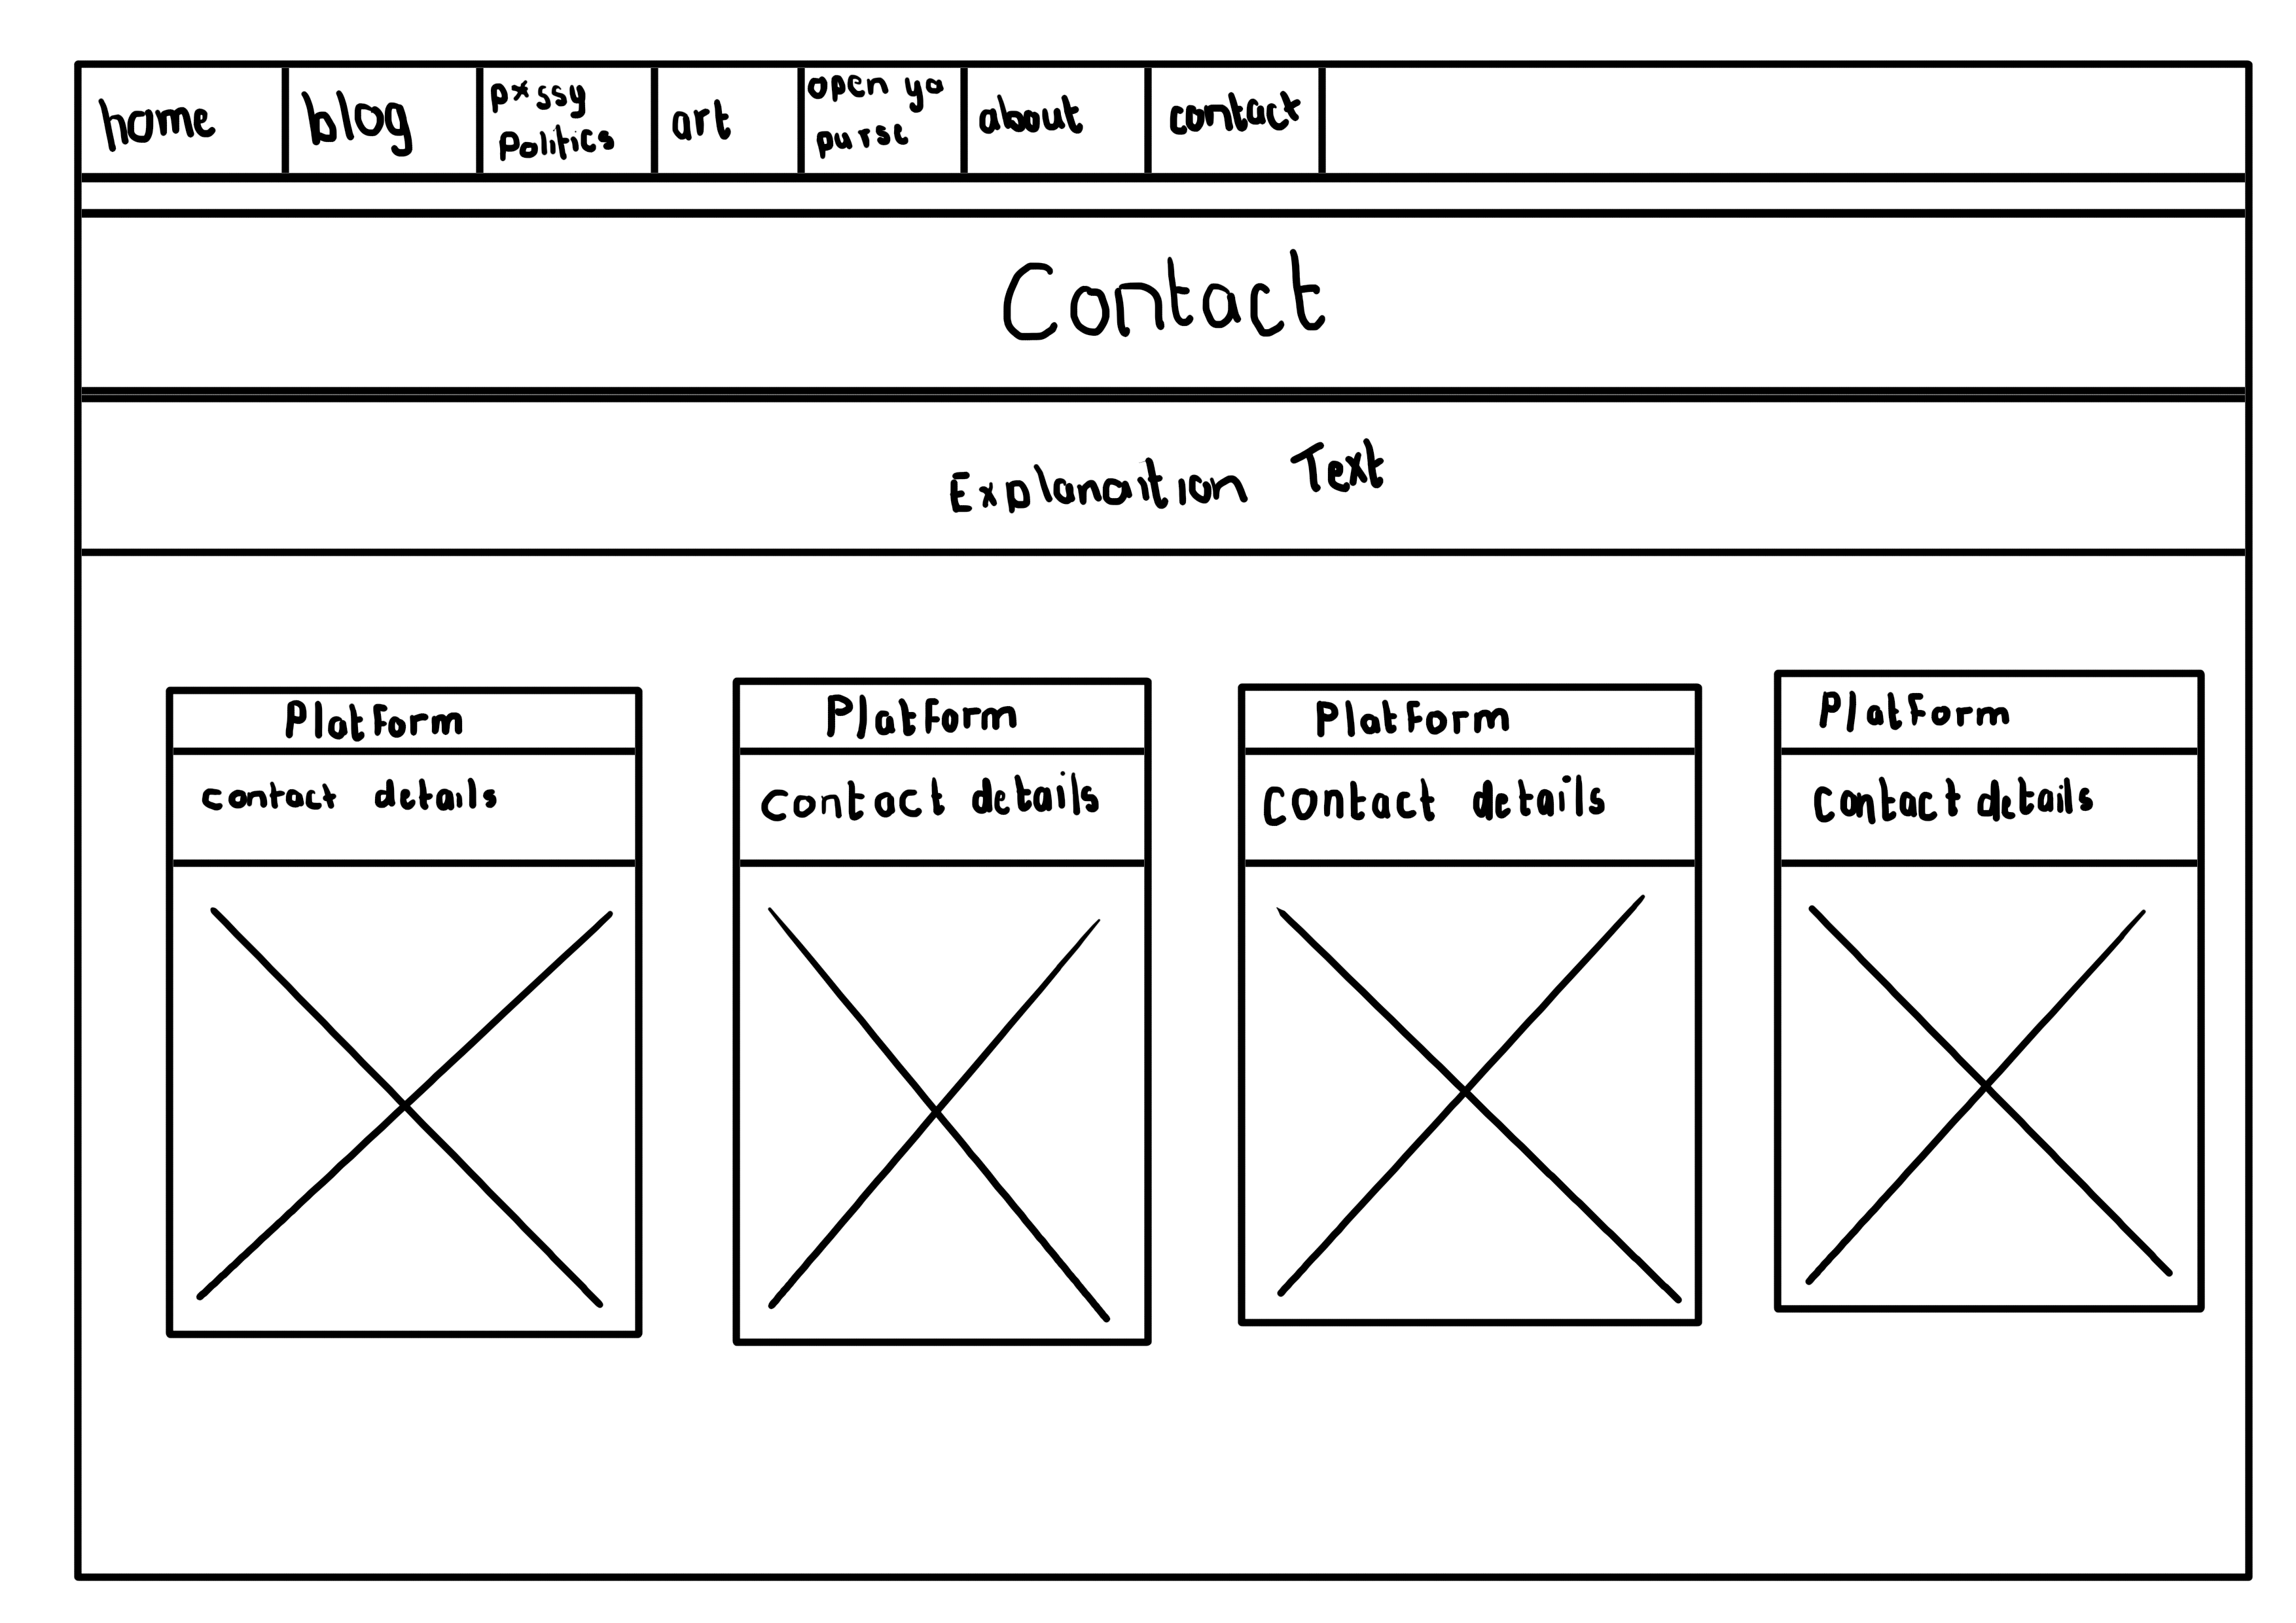 home
blog
p*ssy
politics
art
open ya
purse
about
contact
Contact
Explanation Text
Platform
contact details
Platform
contact details
Platform
contact details
Platform
contact details